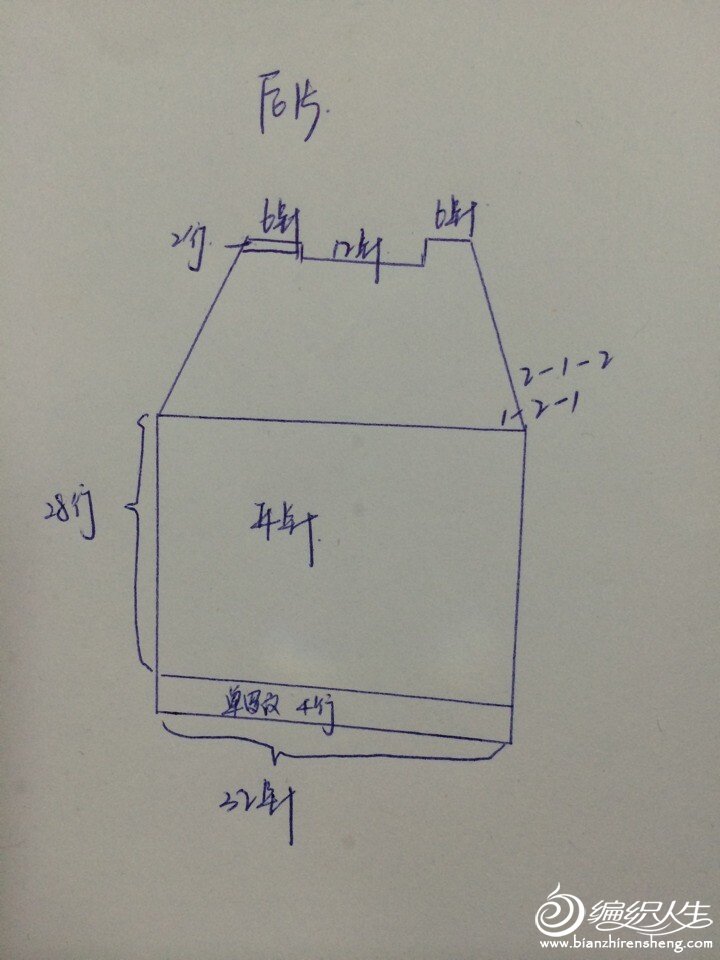 后片.
6针
6针
2行
12针
2-1-2
1-2-1
28行
平针
单罗纹 4行
32针
编织人生
www.bianzhirensheng.com